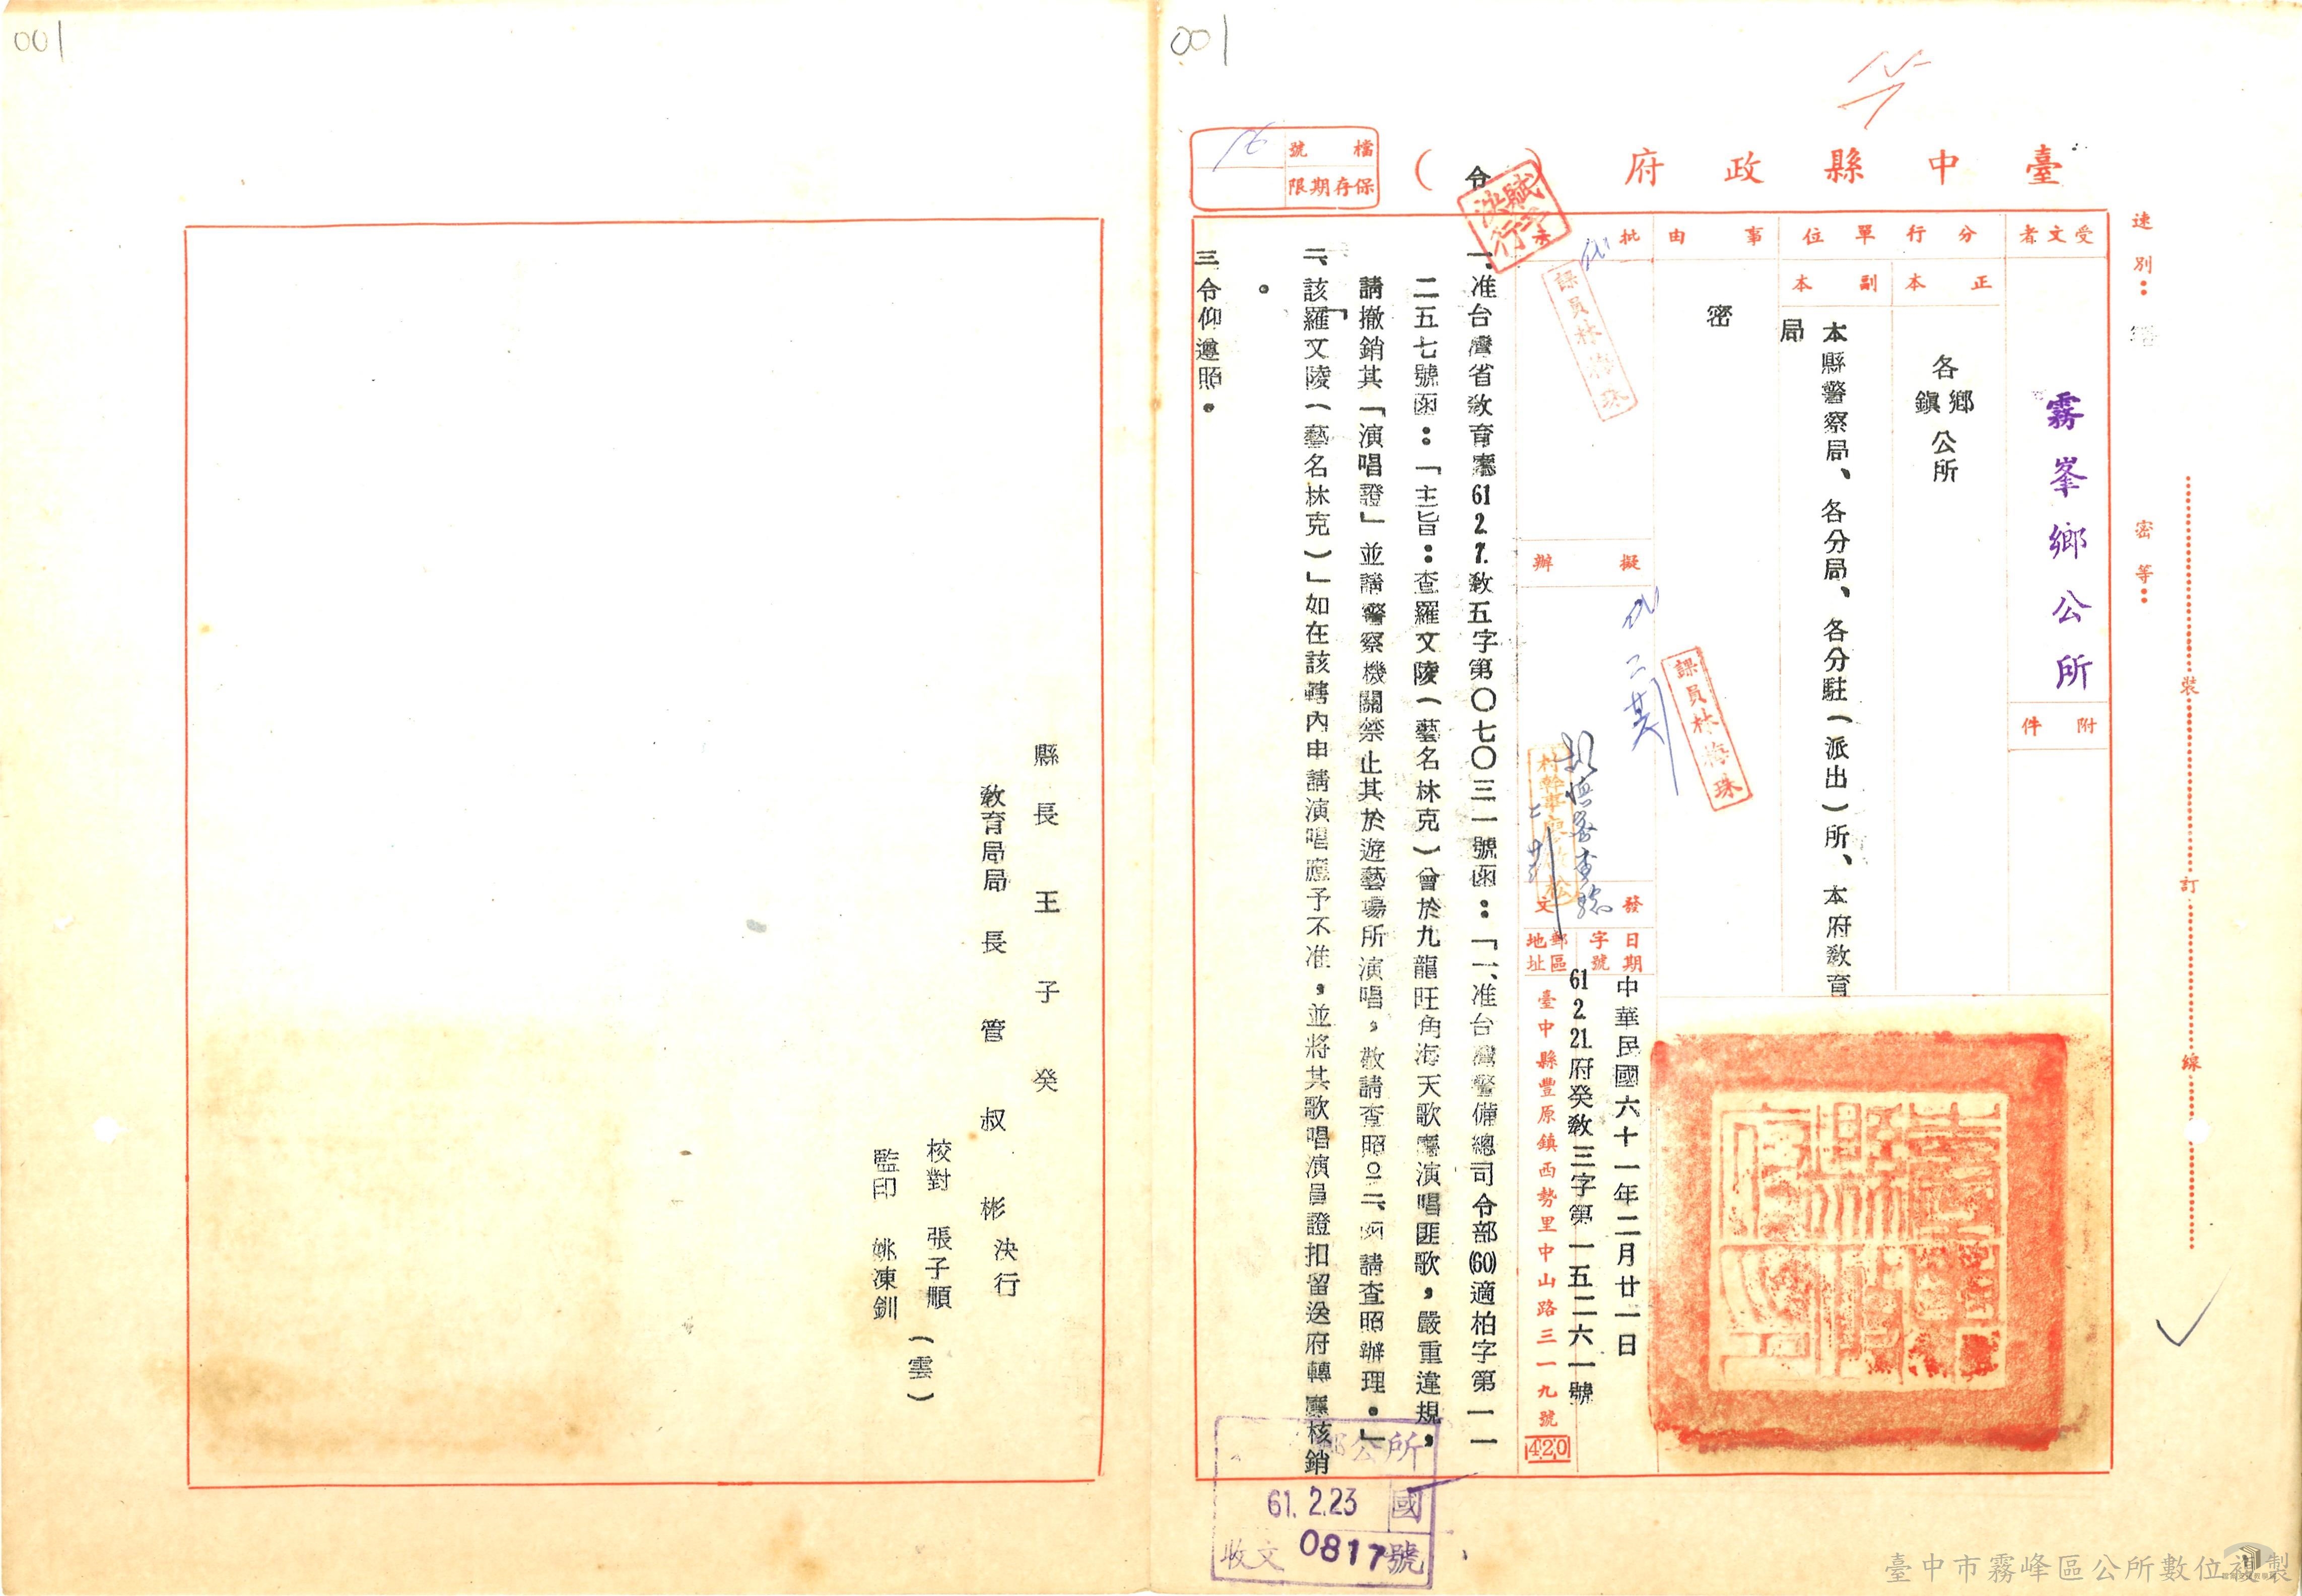 001
001
臺中縣政府（令）
檔號
保存期限
16
速別：
密等：
裝
訂
線
受文者
霧峯鄉公所
附件
分行單位
正本
各鄉鎮公所
副本
本縣警察局、各分局、各分駐（派出）所、本府教育局
事由
密
批示
賦予決行
課員林梅珠
擬辦
課員林梅珠
發文
日期
中華民國六十一年二月廿一日
字號
61 2. 21.府癸教三字第一五二六一號
郵區地址
臺中縣豐原鎮西勢里中山路三一九號
420
一、准台灣省教育廳61 2. 7.教五字第〇七〇三一號函：「一、准台灣警備總司令部(60)適柏字第一一
二五七號函：「主旨：查羅文陵（藝名林克）曾於九龍旺角海天歌廳演唱匪歌，嚴重違規，
請撤銷其「演唱證」並請警察機關禁止其於遊藝場所演唱，敬請查照」二、函請查照辦理。」
二、該「羅文陵（藝名林克）」如在該轄內申請演唱應予不准，並將其歌唱演員證扣留送府轉廳核銷
。
三令仰遵照。
鄉公所
61. 2. 23
國
收文 0817號
縣長王子癸
教育局局長管叔彬決行
校對 張子順（雲）
監印 姚凍釧
臺中市霧峰區公所數位複製